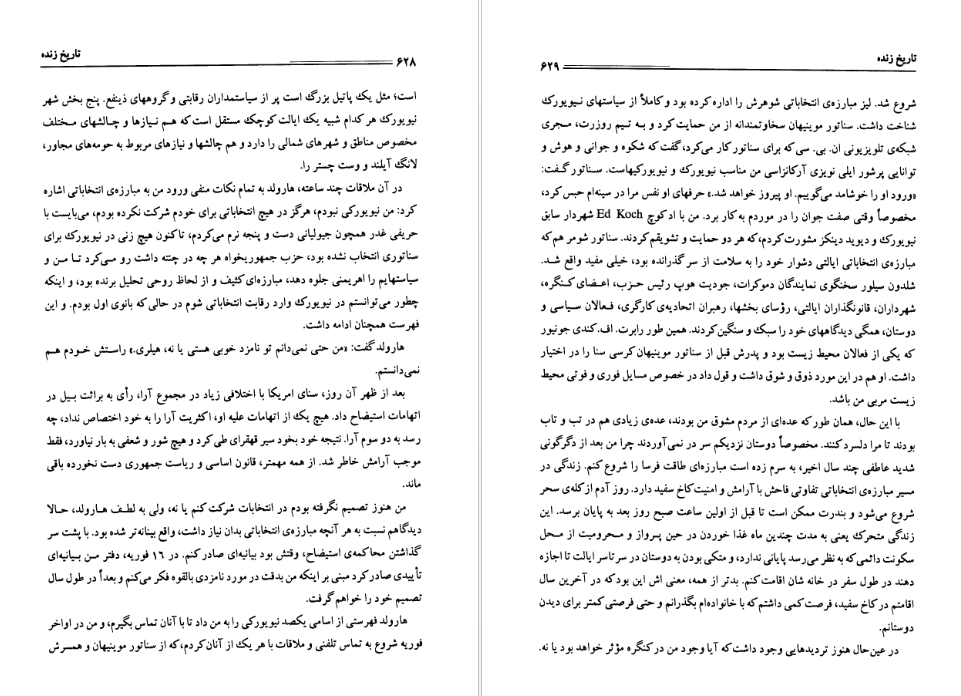 ۶۲۸ تاریخ زنده
است؛ مثل یک پاتیل بزرگ است پر از سیاستمداران رقابتی و گروههای ذینفع. پنج بخش شهر
نیویورک هر کدام شبیه یک ایالت کوچک مستقل است که هم نیازها و چالشهای مختلف
مخصوص مناطق و شهرهای شمالی را دارد و هم چالشها و نیازهای مربوط به حومه‌های مجاور،
لانگ آیلند و وست چستر را.
در آن ملاقات چند ساعته، هارولد به تمام نکات منفی ورود من به مبارزه‌ی انتخاباتی اشاره
کرد: من نیویورکی نبودم، هرگز در هیچ انتخاباتی برای خودم شرکت نکرده بودم، می‌بایست با
حریفی غدر همچون جیولیانی دست و پنجه نرم می‌کردم، تاکنون هیچ زنی در نیویورک برای
سناتوری انتخاب نشده بود، حزب جمهوریخواه هر چه در چنته داشت رو می‌کرد تا من و
سیاستهایم را اهریمنی جلوه دهد، مبارزه‌ای کثیف و از لحاظ روحی تحلیل برنده بود، و اینکه
چطور می‌توانستم در نیویورک وارد رقابت انتخاباتی شوم در حالی که بانوی اول بودم. و این
فهرست همچنان ادامه داشت.
هارولد گفت: «من حتی نمی‌دانم تو نامزد خوبی هستی یا نه، هیلری.» راستش خودم هم
نمی‌دانستم.
بعد از ظهر آن روز، سنای امریکا با اختلافی زیاد در مجموع آرا، رأی به برائت بیل در
اتهامات استیضاح داد. هیچ یک از اتهامات علیه او، اکثریت آرا را به خود اختصاص نداد، چه
رسد به دو سوم آرا. نتیجه خود بخود سیر قهقرای طی کرد و هیچ شور و شعفی به بار نیاورد، فقط
موجب آرامش خاطر شد. از همه مهمتر، قانون اساسی و ریاست جمهوری دست نخورده باقی
ماند.
من هنوز تصمیم نگرفته بودم در انتخابات شرکت کنم یا نه، ولی به لطف هارولد، حالا
دیدگاهم نسبت به هر آنچه مبارزه‌ی انتخاباتی بدان نیاز داشت، واقع بینانه‌تر شده بود. با پشت سر
گذاشتن محاکمه‌ی استیضاح، وقتش بود بیانیه‌ای صادر کنم. در ۱۶ فوریه، دفتر من بیانیه‌ای
تأییدی صادر کرد مبنی بر اینکه من بدقت در مورد نامزدی بالقوه فکر می‌کنم و بعداً در طول سال
تصمیم خود را خواهم گرفت.
هارولد فهرستی از اسامی یکصد نیویورکی را به من داد تا با آنان تماس بگیرم، و من در اواخر
فوریه شروع به تماس تلفنی و ملاقات با هر یک از آنان کردم، که از سناتور موینیهان و همسرش
تاریخ زنده ۶۲۹
شروع شد. لیز مبارزه‌ی انتخاباتی شوهرش را اداره کرده بود و کاملاً از سیاستهای نیویورک
شناخت داشت. سناتور موینیهان سخاوتمندانه از من حمایت کرد و به تیم روزرت، مجری
شبکه‌ی تلویزیونی ان. بی. سی که برای سناتور کار می‌کرد، گفت که شکوه و جوانی و هوش و
توانایی پرشور ایلی نویزی آرکانزاسی من مناسب نیویورک و نیویورکیهاست. سناتور گفت:
«ورود او را خوشامد می‌گوییم. او پیروز خواهد شد.» حرفهای او نفس مرا در سینه‌ام حبس کرد،
مخصوصاً وقتی صفت جوان را در موردم به کار برد. من با اد کوچ Ed Koch شهردار سابق
نیویورک و دیوید دینکز مشورت کردم، که هر دو حمایت و تشویقم کردند. سناتور شومر هم که
مبارزه‌ی انتخاباتی ایالتی دشوار خود را به سلامت از سر گذرانده بود، خیلی مفید واقع شد.
شلدون سیلور سخنگوی نمایندگان دموکرات، جودیت هوپ رئیس حزب، اعضای کنگره،
شهرداران، قانونگذاران ایالتی، رؤسای بخشها، رهبران اتحادیه‌ی کارگری، فعالان سیاسی و
دوستان، همگی دیدگاههای خود را سبک و سنگین کردند. همین طور رابرت. اف. کندی جونیور
که یکی از فعالان محیط زیست بود و پدرش قبل از سناتور موینیهان کرسی سنا را در اختیار
داشت. او هم در این مورد ذوق و شوق داشت و قول داد در خصوص مسایل فوری و فوتی محیط
زیست مربی من باشد.
با این حال، همان طور که عده‌ای از مردم مشوق من بودند، عده‌ی زیادی هم در تب و تاب
بودند تا مرا دلسرد کنند. مخصوصاً دوستان نزدیکم سر در نمی‌آوردند چرا من بعد از دگرگونی
شدید عاطفی چند سال اخیر، به سرم زده است مبارزه‌ای طاقت فرسا را شروع کنم. زندگی در
مسیر مبارزه‌ی انتخاباتی تفاوتی فاحش با آرامش و امنیت کاخ سفید دارد. روز آدم از کله‌ی سحر
شروع می‌شود و بندرت ممکن است تا قبل از اولین ساعت صبح روز بعد به پایان برسد. این
زندگی متحرک یعنی به مدت چندین ماه غذا خوردن در حین پرواز و محرومیت از محل
سکونت دائمی که به نظر می‌رسد پایانی ندارد، و متکی بودن به دوستان در سرتاسر ایالت تا اجازه
دهند در طول سفر در خانه شان اقامت کنم. بدتر از همه، معنی اش این بود که در آخرین سال
اقامتم در کاخ سفید، فرصت کمی داشتم که با خانواده‌ام بگذرانم و حتی فرصتی کمتر برای دیدن
دوستانم.
در عین‌حال هنوز تردیدهایی وجود داشت که آیا وجود من در کنگره مؤثر خواهد بود یا نه.